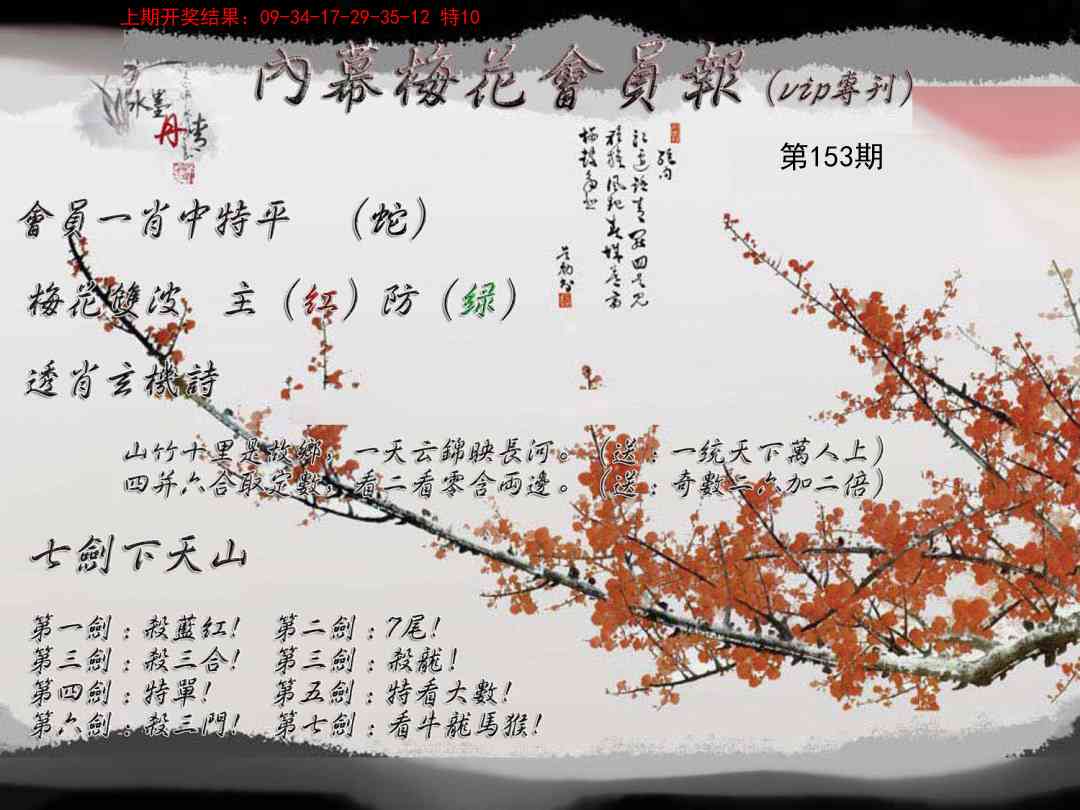 上期开奖结果：09-34-17-29-35-12 特10
內幕梅花會員報(vip專刊)
水墨
丹青
第153期
會員一肖中特平 （蛇）
梅花雙波 主（红）防（绿）
透肖玄機詩
山竹十里是故鄉，一天云錦映長河。（送：一统天下萬人上）
四并六合取定數，看二看零含兩邊。（送：奇數二六加二倍）
七劍下天山
第一劍：殺藍紅！ 第二劍：7尾！
第三劍：殺三合！ 第三劍：殺龍！
第四劍：特單！ 第五劍：特看大數！
第六劍：殺三門！ 第七劍：看牛龍馬猴！